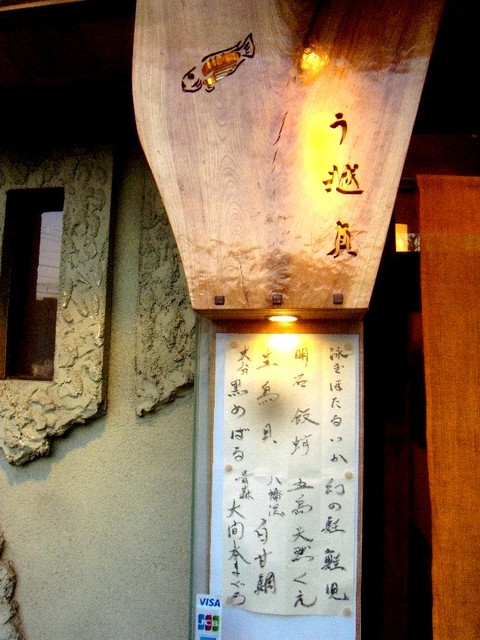 う越貞
泳ぎほたるいか 幻の鮭 鮭児
明石 飯蛸 五島 天然くえ
鳥貝 八幡浜 白甘鯛
大分 黒めばる 青森 大間本まぐろ
VISA
JCB